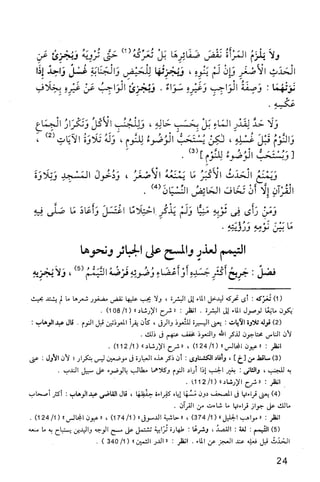 ولاَ يَلْزَمُ المَرْأَةَ نَقْضُ ضَفَائِرِهَا بَلْ تُعَرِّكُهُ (1) حَتَّى تُرْوِيَهُ وَيُجْزِئُ عَنِ
الْحَدَثِ الأَصْغَرِ وَإِنْ لَمْ يَنْوِهِ ، وَيُجْزِئُهَا لِلْحَيْضِ وَالْجَنَابَةِ غُسْلٌ وَاحِدٌ إِذَا
نَوَتْهُمَا : وَصِفَةُ الْوَاجِبِ وَغَيْرِهِ سَوَاءٌ . وَيُجْزِئُ الْوَاجِبُ عَنْ غَيْرِهِ بِخِلاَفِ
عَكْسِهِ .
وَلاَ حَدَّ لِقَدْرِ الْمَاءِ بَلْ بِحَسَبِ حَالِهِ ، وَلِلْجُنُبِ الأَكْلُ وَتَكْرَارُ الْجِمَاعِ
وَالنَّوْمُ قَبْلَ غُسْلِهِ ، لَكِنْ يُسْتَحَبُّ الْوُضُوءُ لِلنَّوْمِ ، وَلَهُ تِلاَوَةُ الآيَاتِ (2) ،
[ وَيُسْتَحَبُّ الْوُضُوءُ لِلنَّوْمِ ] (3) .
وَيَمْنَعُ الْحَدَثُ الأَكْبَرُ مَا يَمْنَعُهُ الأَصْغَرُ ، وَدُخُولَ الْمَسْجِدِ وَتِلاَوَةَ
الْقُرْآنِ إِلاَّ أَنْ تَخَافَ الحَائِضُ النِّسْيَانَ (4) .
وَمَنْ رَأَى فِي ثَوْبِهِ مَنِيًّا وَلَمْ يَذْكُرِ احْتِلاَمًا اغْتَسَلَ وَأَعَادَ مَا صَلَّى فِيهِ
مَا بَيْنَ نَوْمِهِ وَرُؤْيَتِهِ .
التيمم لعذر والمسح على الجبائر ونحوها
فصل : جَرِيحُ أَكْثَرِ جَسَدِهِ أَوْ أَعْضَاءِ وُضُوئِهِ فَرْضُهُ التَّيَمُّمُ (5) ، وَلاَ يُجْزِيهِ
(1) تعركه : أي تحركه ليدخل الماء إلى البشرة ، ولا يجب عليها نقض مضفور شعرها ما لم يشتد بحيث
يكون مانعًا لوصول الماء إلى البشرة . انظر : « شرح الإرشاد » (1/ 108) .
(2) قوله تلاوة الآيات : يعني اليسيرة للتعوذ والرقى ، كأن يقرأ المعوذتين قبل النوم . قال عبد الوهاب :
لأن الناس محتاجون لذكر الله والتعوذ فخفف عنهم في ذلك .
انظر : « عيون المجالس » (1/ 124) ، « شرح الإرشاد » (1/ 112) .
(3) ساقط من [ خ ] ، وأفاد الكشناوي : أن ذكر هذه العبارة في موضعين ليس بتكرار ؛ لأن الأول : عنى
به للجنب ، والثاني : بغير الجنب إذا أراد النوم وكلاهما مطالب بالوضوء على سبيل الندب .
انظر : « شرح الإرشاد » (1/ 112) .
(4) يعني قراءتها في المصحف دون مسها إياه كقراءة حفظها ، قال القاضي عبد الوهاب : أكثر أصحاب
مالك على جواز قراءتها ما شاءت من القرآن .
انظر : « مواهب الجليل » (1/ 374) ، « حاشية الدسوقي » (1/ 174) ، « عيون المجالس » (1/ 124) .
(5) التيمم : لغة : القصد ، وشرعًا : طهارة ترابية تشتمل على مسح الوجه واليدين يستباح به ما منعه
الحدث قبل فعله عند العجز عن الماء . انظر : « الدر الثمين » (1/ 340) .
24